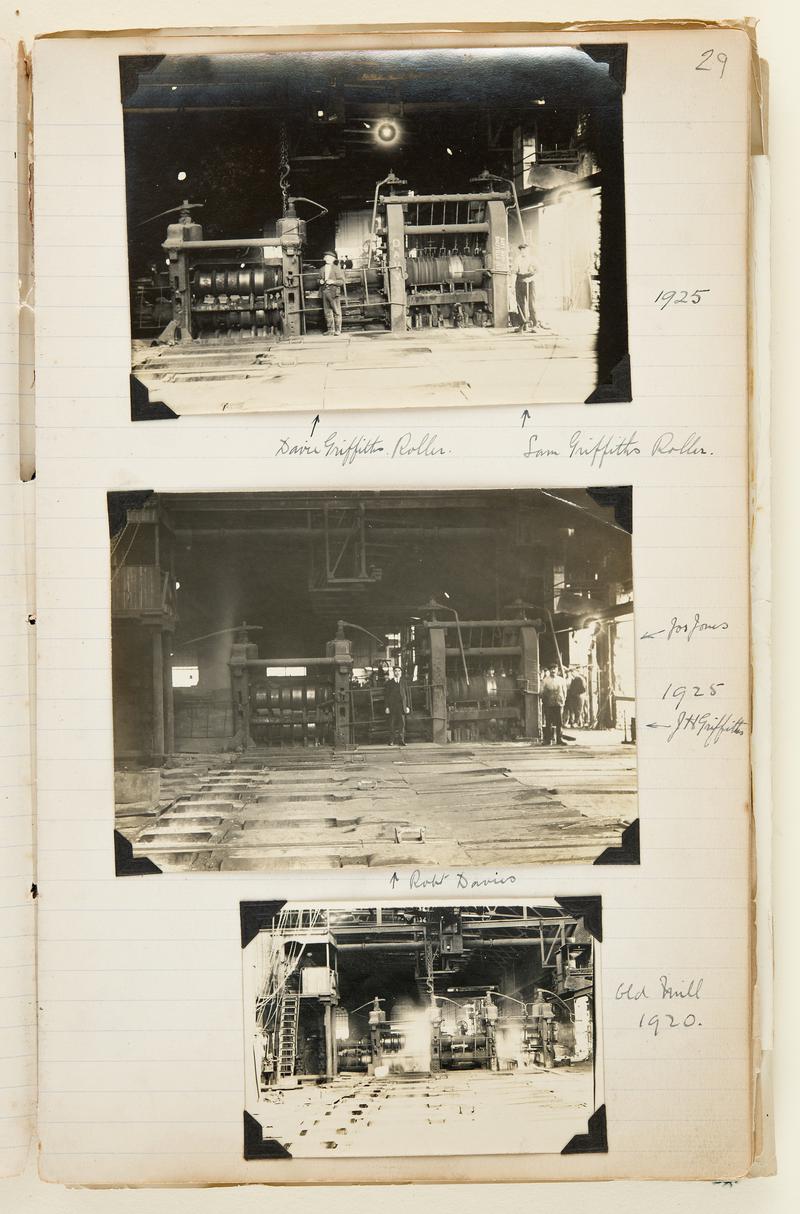 29
1925
Davie Griffiths. Roller.
Sam Griffiths Roller.
Jos Jones
1925
J H Griffiths
Robt Davies
Old Mill
1920.